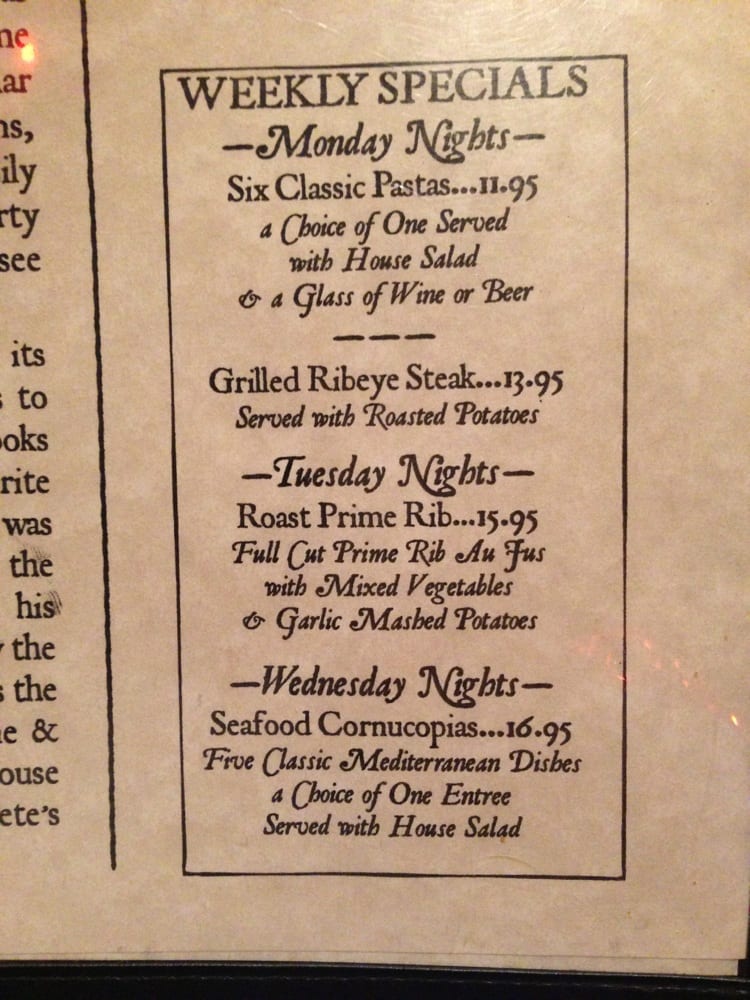 ne
ar
ns,
ily
rty
see
its
s to
ooks
rite
was
the
his
y the
s the
e &
ouse
ete's
WEEKLY SPECIALS
—Monday Nights—
Six Classic Pastas...11.95
a Choice of One Served
with House Salad
& a Glass of Wine or Beer
— — —
Grilled Ribeye Steak...13.95
Served with Roasted Potatoes
—Tuesday Nights—
Roast Prime Rib...15.95
Full Cut Prime Rib Au Jus
with Mixed Vegetables
& Garlic Mashed Potatoes
—Wednesday Nights—
Seafood Cornucopias...16.95
Five Classic Mediterranean Dishes
a Choice of One Entree
Served with House Salad